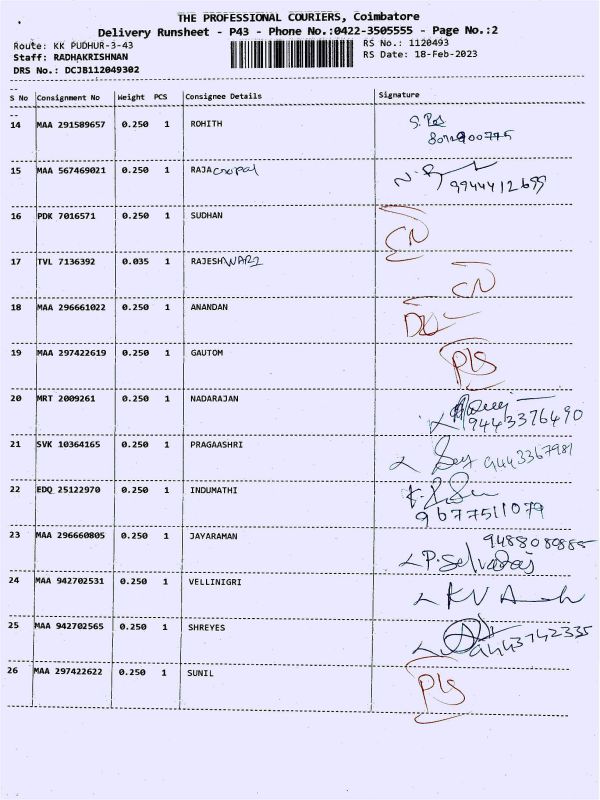 THE PROFESSIONAL COURIERS, Coimbatore
Delivery Runsheet - P43 - Phone No.:0422-3505555 - Page No.:2
Route: KK PUDHUR-3-43
RS No.: 1120493
Staff: RADHAKRISHNAN
RS Date: 18-Feb-2023
DRS No.: DCJB112049302
S No Consignment No Weight PCS Consignee Details Signature
14 MAA 291589657 0.250 1 ROHITH
15 MAA 567469021 0.250 1 RAJA Gopal 9944412699
16 PDK 7016571 0.250 1 SUDHAN
17 TVL 7136392 0.035 1 RAJESHWARI
18 MAA 296661022 0.250 1 ANANDAN
19 MAA 297422619 0.250 1 GAUTOM PLS
20 MRT 2009261 0.250 1 NADARAJAN
9443376490
21 SVK 10364165 0.250 1 PRAGAASHRI 9443367981
22 EDQ 25122970 0.250 1 INDUMATHI
9677511079
23 MAA 296660805 0.250 1 JAYARAMAN 9488080885
P. Selvaraj
24 MAA 942702531 0.250 1 VELLINIGRI
25 MAA 942702565 0.250 1 SHREYES 9443742335
26 MAA 297422622 0.250 1 SUNIL PLS